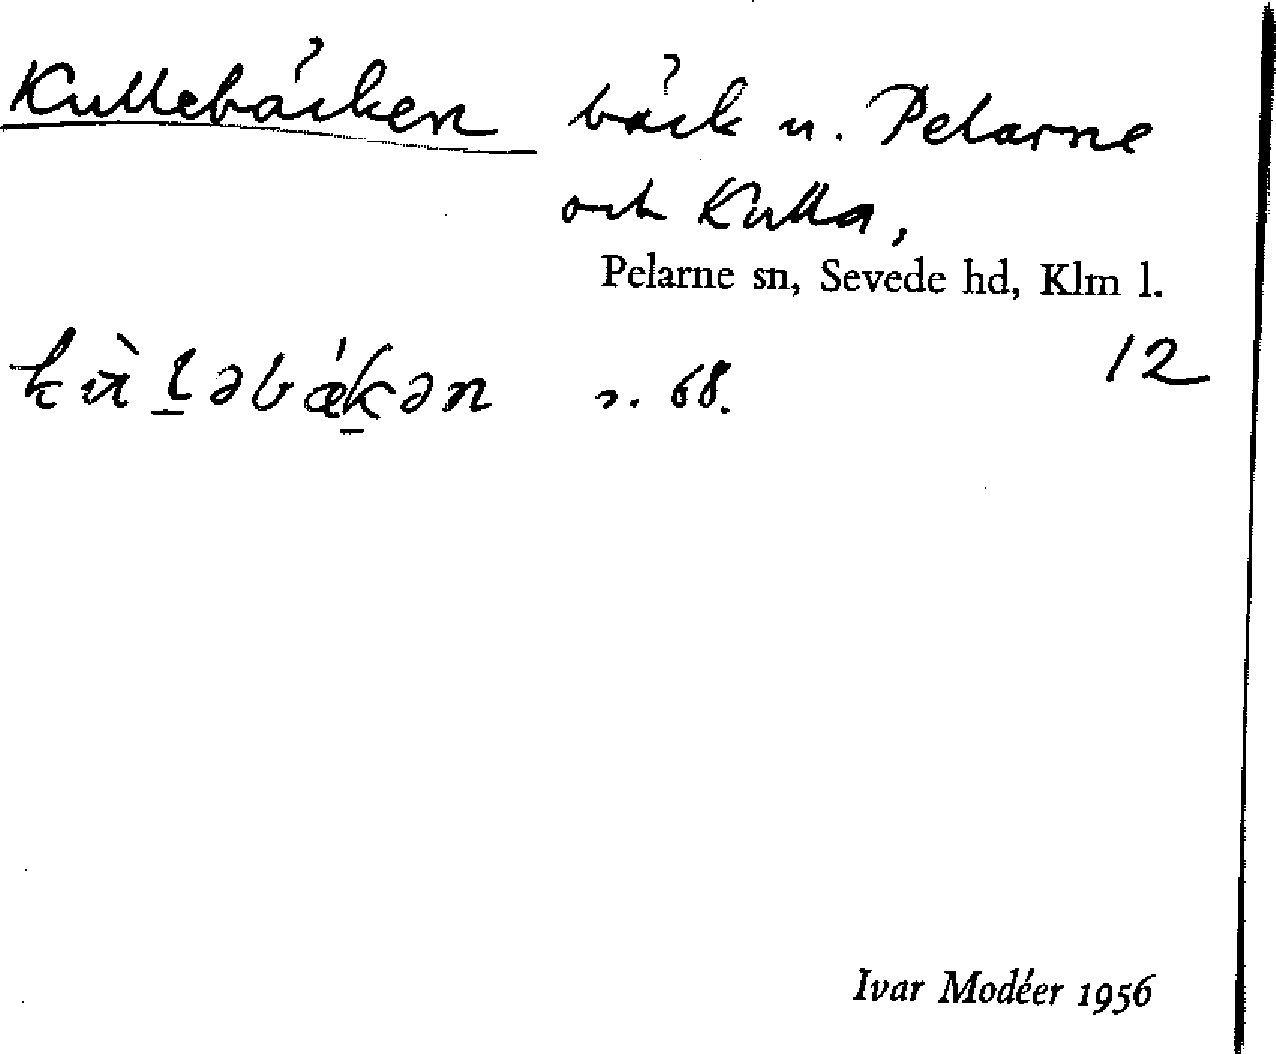 Kullebäcken bäck u. Pelarne
och Kulla,
Pelarne sn, Sevede hd, Klm l.
12
s. 68.
Ivar Modéer 1956